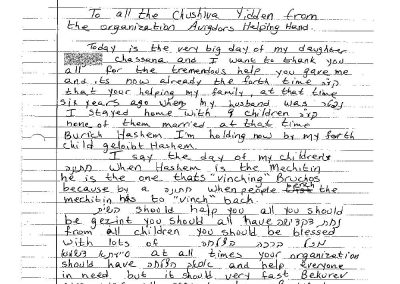 To all the Chushiva Yidden from
the organization Avigdors Helping Hand.
Today is the very big day of my daughter
chassana and I want to thank you
all for the tremendous help you gave me
and its now already the forth time
that your helping my family, at that time
six years ago when my husband was נפטר
I stayed home with 9 children
none of them married at that time
Burich Hashem I'm holding now by my forth
child geloibt Hashem.
I say the day of my childrens
חתונה when Hashem is the Mechitin
he is the one thats "vinching" Bruchos
because by a חתונה when people the
mechitin has to "vinch" back.
השי"ת should help you all you should
be gezint you should all have נחת
from all children you should be blessed
with lots of ברכה
at all times your organization
should have and help everyone
in need but it should very fast Bekurev